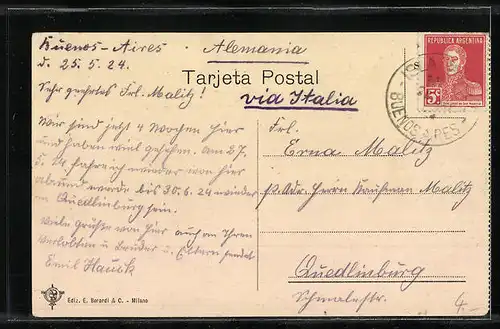 Buenos-Aires.
d. 25.5.24.
Alemania
Tarjeta Postal
via Italia
Sehr geehrtes Frl. Malitz!
Wir sind jetzt 4 Wochen hier
und haben viel gesehen. Am 27.
5. 24 fahre ich wieder von hier
ab und werde bis 30.6.24 wieder
in Quedlinburg sein.
Viele Grüsse von hier auch an Ihren
Verlobten u. Bruder u. Eltern sendet
Emil Hauck
Ediz. E. Berardi & C. - Milano
REPUBLICA ARGENTINA
5c
BUENOS AIRES
Frl.
Erna Malitz
p. Adr. Herrn Kaufman Malitz
Quedlinburg
Schmalestr.
4.-